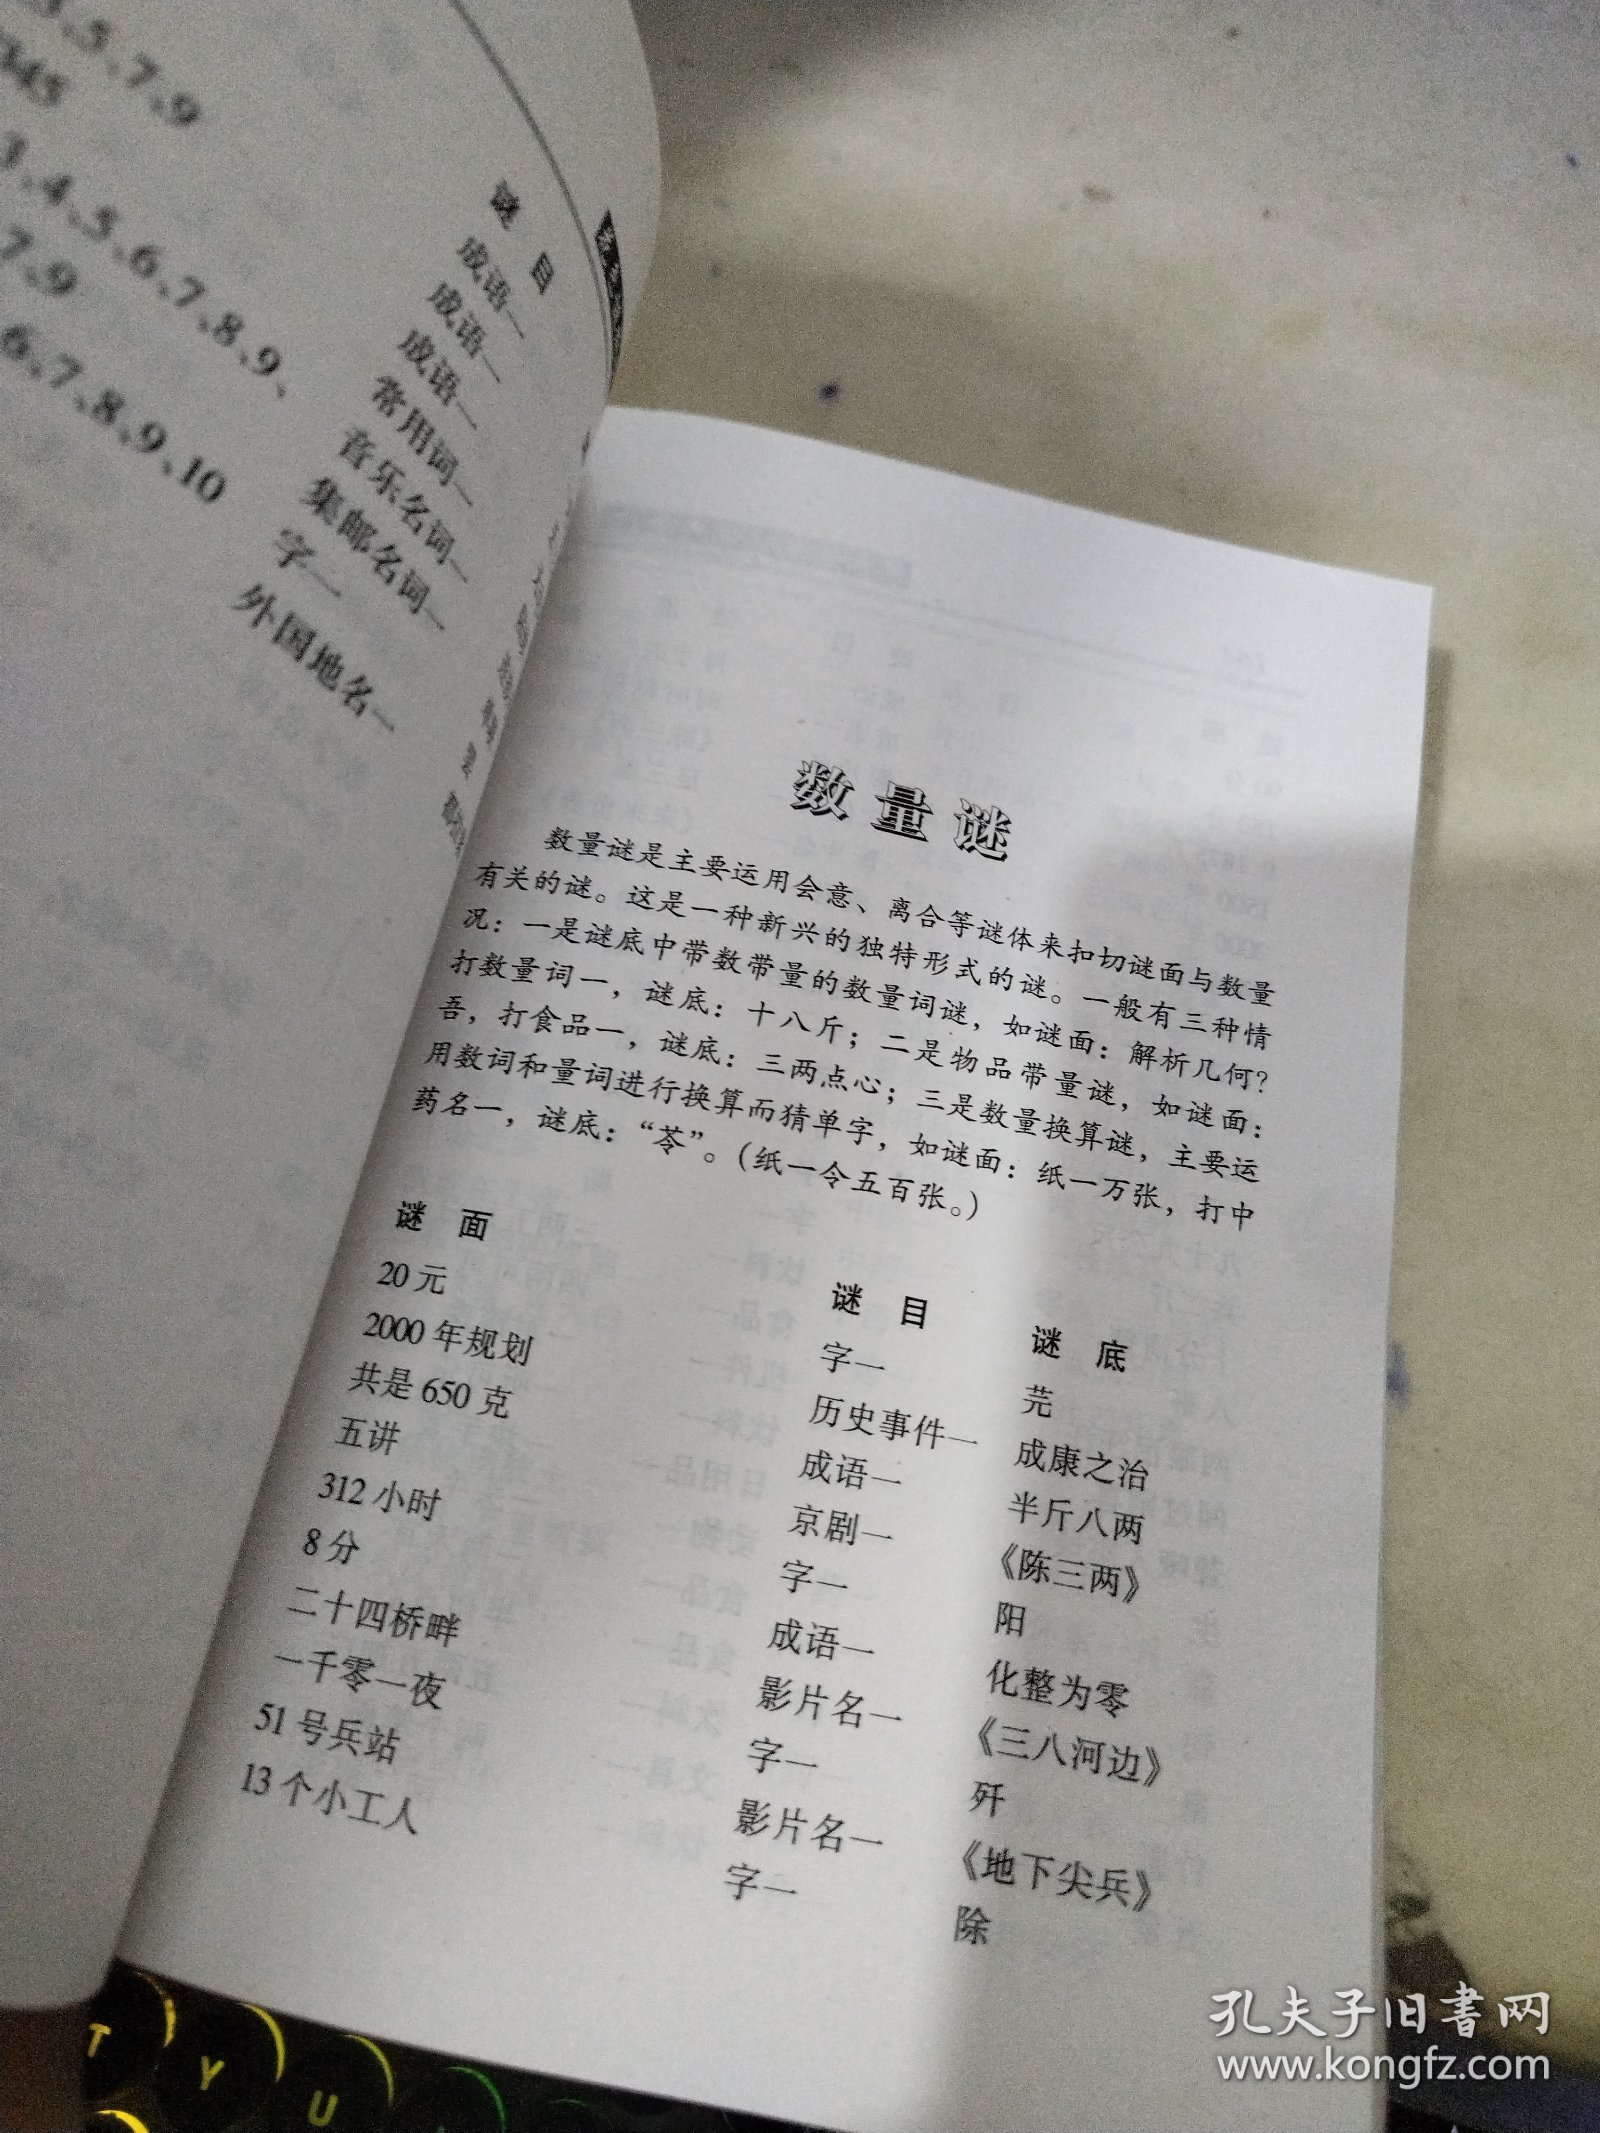 3、5、7、9
345
3、4、5、6、7、8、9、
7、9
6、7、8、9、10
谜 目
成语一
成语一
成语一
常用词一
音乐名词一
集邮名词一
字一
外国地名一
数量谜
数量谜是主要运用会意、离合等谜体来扣切谜面与数量
有关的谜。这是一种新兴的独特形式的谜。一般有三种情
况：一是谜底中带数带量的数量词谜，如谜面：解析几何？
打数量词一，谜底：十八斤；二是物品带量谜，如谜面：
吾，打食品一，谜底：三两点心；三是数量换算谜，主要运
用数词和量词进行换算而猜单字，如谜面：纸一万张，打中
药名一，谜底：“苓”。（纸一令五百张。）
谜 面 谜 目 谜 底
20元 字一 芫
2000年规划 历史事件一 成康之治
共是650克 成语一 半斤八两
五讲 京剧一 《陈三两》
312小时 字一 阳
8分 成语一 化整为零
二十四桥畔 影片名一 《三八河边》
一千零一夜 字一 歼
51号兵站 影片名一 《地下尖兵》
13个小工人 字一 除
T
Y
U
孔夫子旧书网
www.kongfz.com